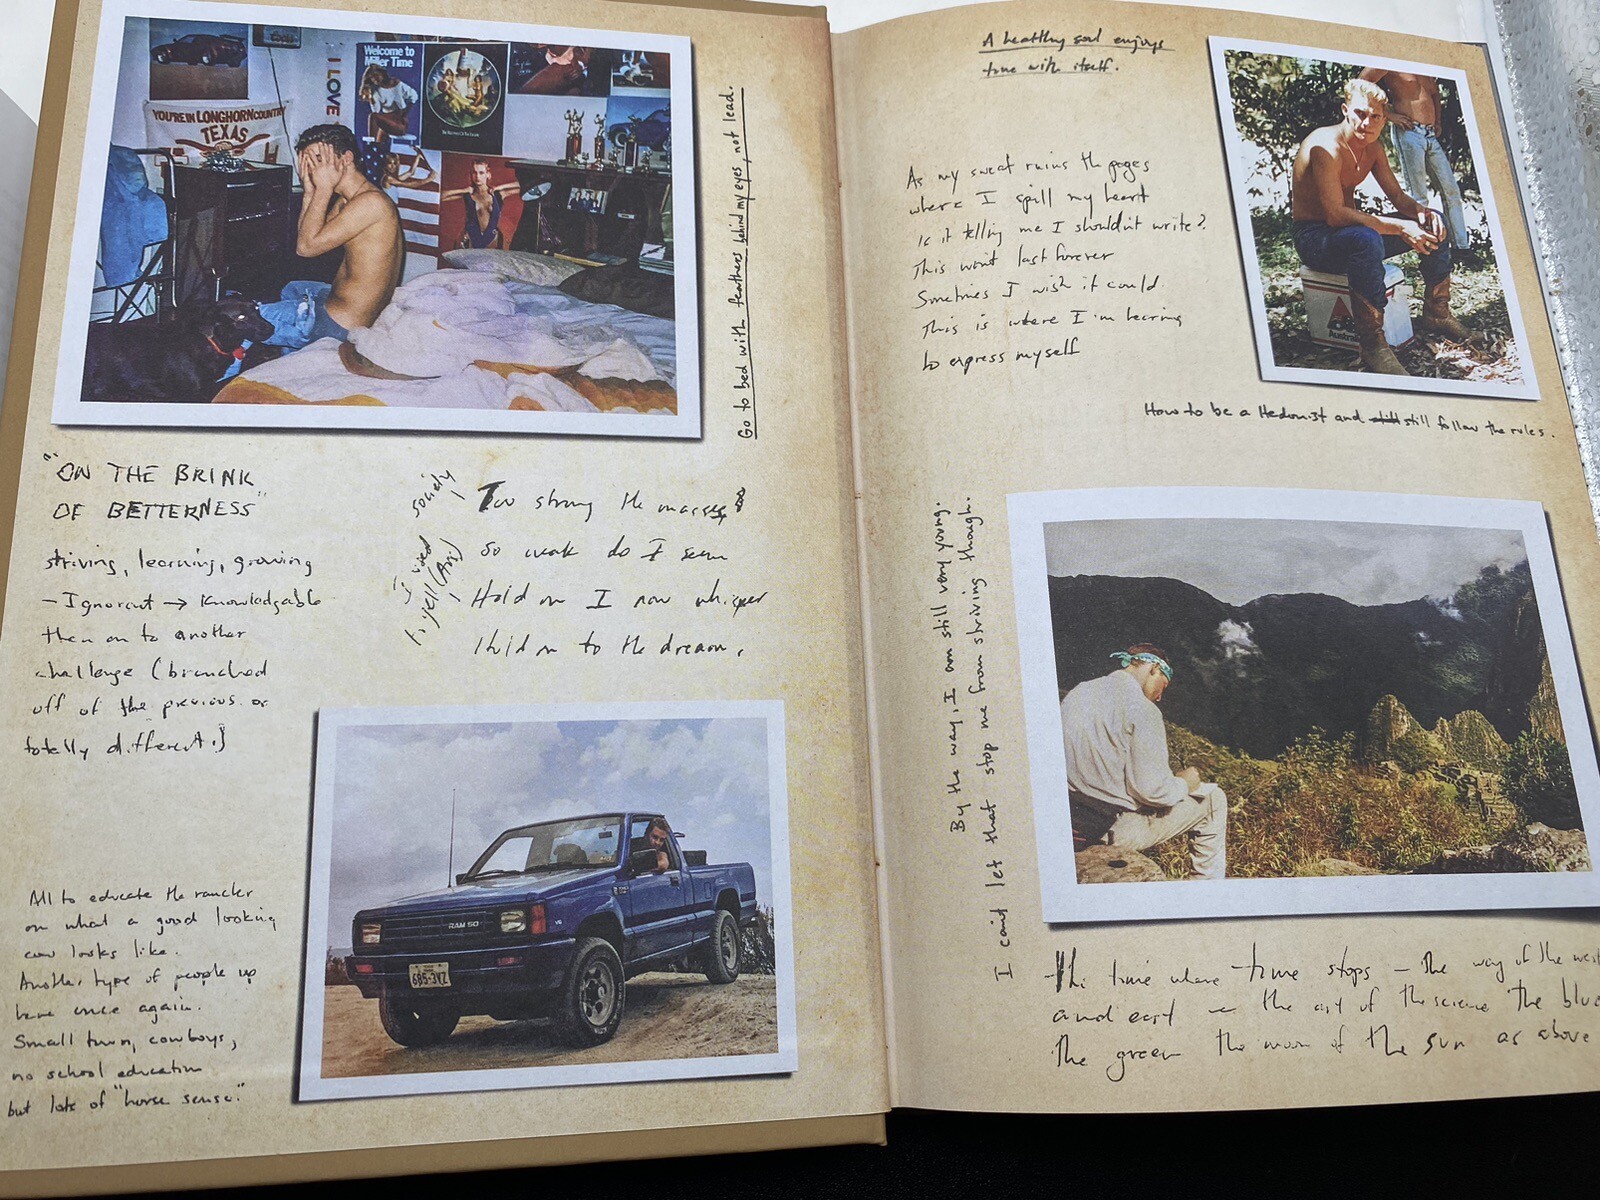 Welcome to
Miller Time
I LOVE
YOU'RE IN LONGHORN COUNTRY
TEXAS
Go to bed with feathers behind my eyes, not lead.
"ON THE BRINK
OF BETTERNESS"
striving, learning, growing
- Ignorant → Knowledgable
then on to another
challenge (branched
off of the previous or
totally different.)
society
I need
to yell (Ari)
Too strong the masses
So weak do I seem
Hold on I now whisper
Hold on to the dream.
RAM 50
V6
685-3VZ
All to educate the rancher
on what a good looking
cow looks like.
Another type of people up
here once again.
Small town, cowboys,
no school education
but lots of "horse sense."
A healthy soul enjoys
time with itself.
As my sweat ruins the pages
where I spill my heart
Is it telling me I shouldn't write?
This won't last forever
Sometimes I wish it could
This is where I'm learning
to express myself
How to be a Hedonist and still still follow the rules.
By the way, I am still very young.
I can't let that stop me from striving though.
The time where time stops – the way of the west
and east – the art of the science the blue
the green the moon of the sun as above